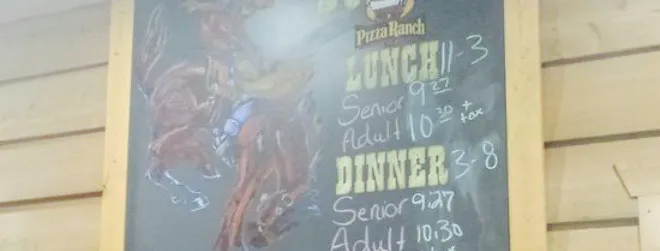 Pizza Ranch
LUNCH 11-3
Senior 9 27
Adult 10 30 + tax
DINNER 3-8
Senior 9.27
Adult 10.30